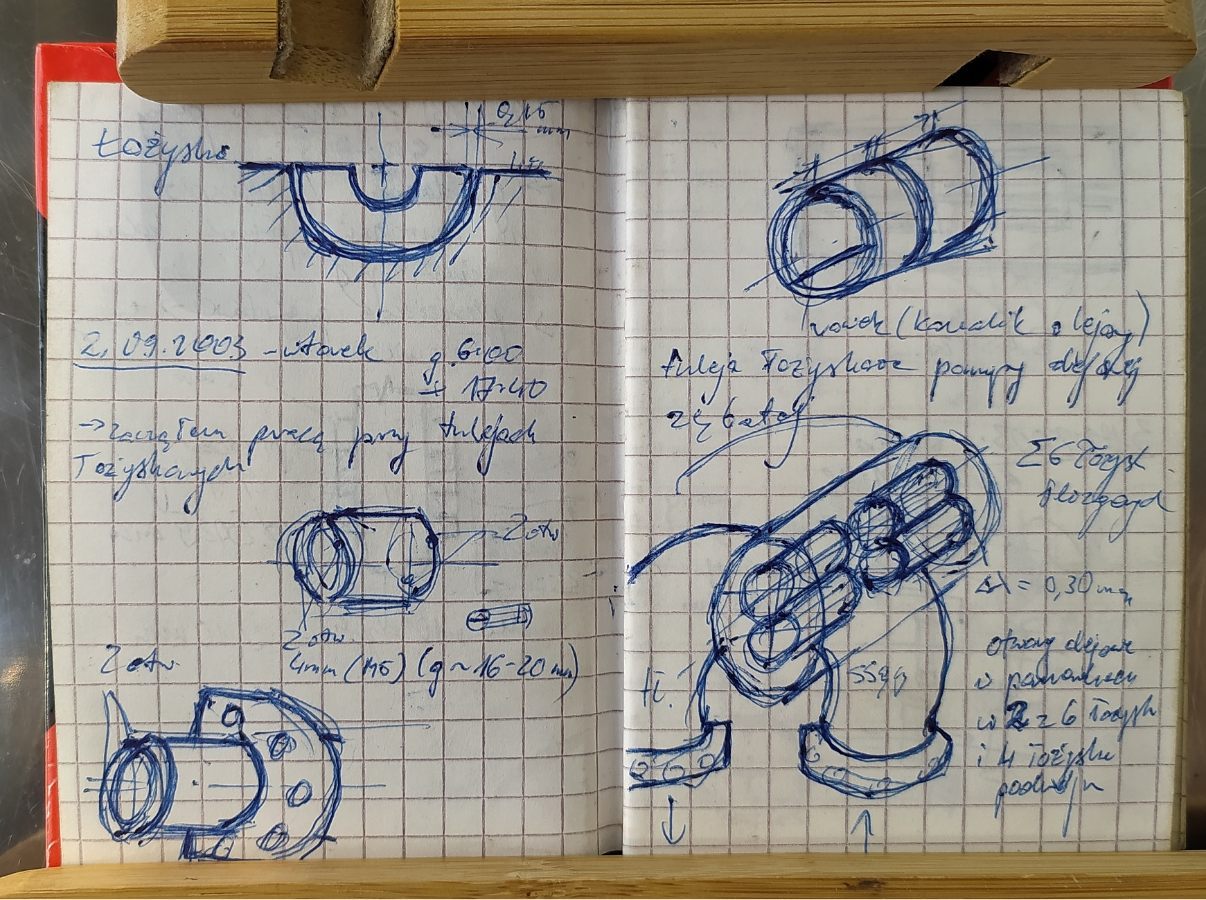 Łożysko
0,15
mm
2.09.2003 - wtorek g. 6:00
÷ 17:40
→ zacząłem pracę przy tulejach
Łożyskowych
2 otw
2 otw.
4mm (M5) (g ~ 16-20 mm)
2 otw.
rowek (kanalik olejowy)
tuleja Łożyskowa pompy olejowej
zębatej
Σ6 Łożysk
= 0,30 mm
otwory olejowe
w
w 2 z 6 Łożysk
i 4 łożyska
tł.
ssący